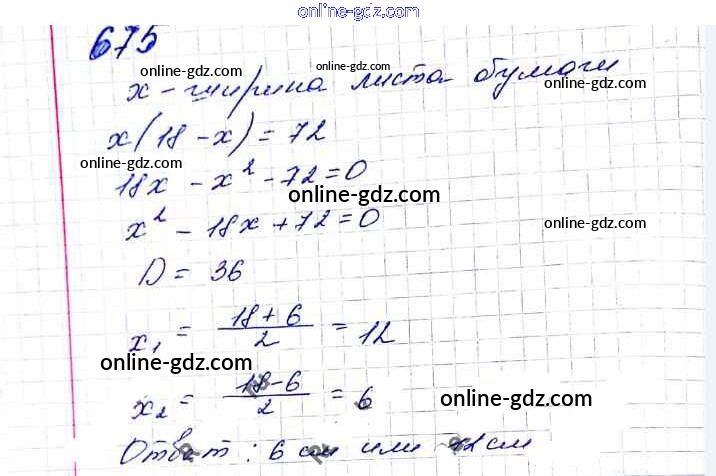 online-gdz.com
675
online-gdz.com
online-gdz.com
online-gdz.com
x - ширина листа бумаги
online-gdz.com
x(18 - x) = 72
online-gdz.com
18x - x² - 72 = 0
online-gdz.com
online-gdz.com
x² - 18x + 72 = 0
D = 36
x₁ = (18 + 6)/2 = 12
online-gdz.com
x₂ = (18 - 6)/2 = 6
online-gdz.com
Ответ: 6 см или 12 см